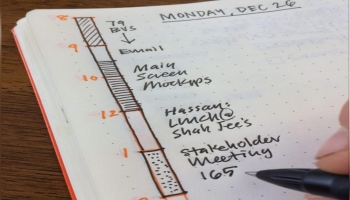 MONDAY, DEC 26
8
79
BVS
9
Email
Main
10
Screen
Mockups
Hassan:
12
Lunch@
Shah Jee's
1
Stakeholder
Meeting
165